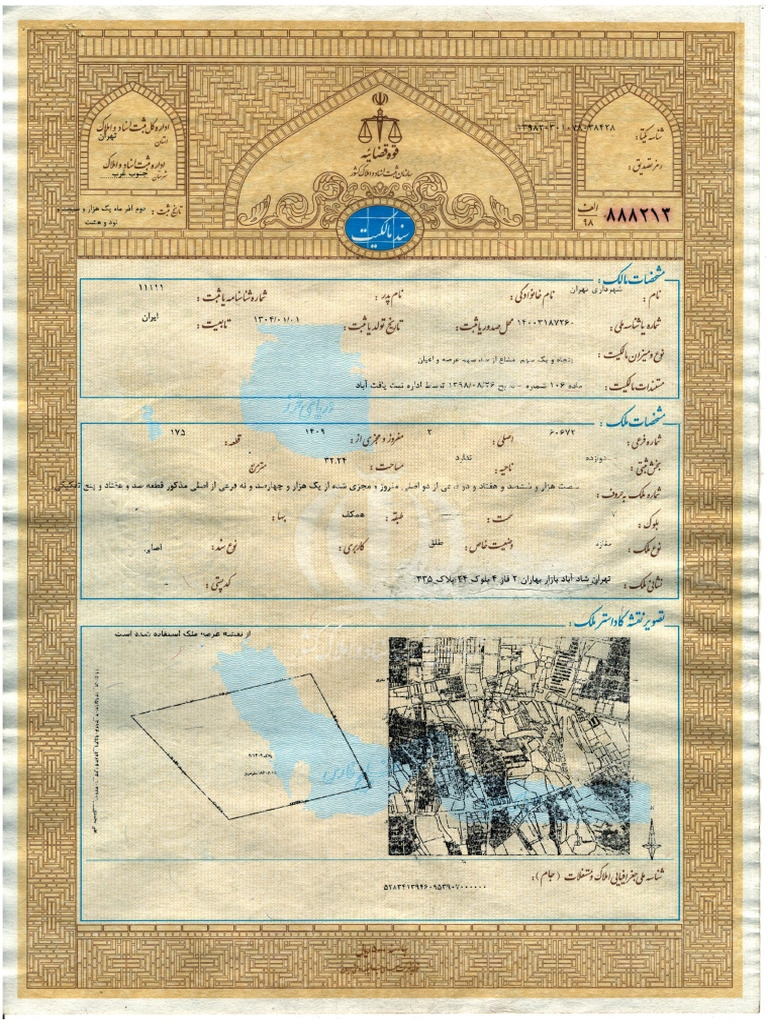 اداره کل ثبت اسناد و املاک
استان تهران
اداره ثبت اسناد و املاک
شهرستان جنوب غرب
تاریخ ثبت : دوم آذر ماه یک هزار و سیصد و
نود و هشت
قوه قضائیه
سازمان ثبت اسناد و املاک کشور
سند مالکیت
شناسه یکتا : ۱۳۹۸۲۰۳۰۱۰۷۸۰۳۸۴۲۸
رمز تصدیق :
الف ۹۸ ۸۸۸۲۱۳
مشخصات مالک :
نام : شهرداری تهران نام خانوادگی : نام پدر : شماره شناسنامه یا ثبت : ۱۱۱۱۱
شماره یا شناسه ملی : ۱۴۰۰۳۱۸۷۲۶۰ محل صدور یا ثبت : تاریخ تولد یا ثبت : ۱۳۰۴/۰۱/۰۱ تابعیت : ایران
نوع و میزان مالکیت : پنجاه و یک سهم مشاع از سهم عرصه و اعیان
مستندات مالکیت : ماده ۱۰۶ شماره - تاریخ ۱۳۹۸/۰۸/۲۶ توسط اداره ثبت یافت آباد
مشخصات ملک :
شماره فرعی : ۶۰۶۷۲ اصلی : ۲ مفروز و مجزی از : ۱۴۰۹ قطعه : ۱۷۵
بخش ثبتی : دوازده ناحیه : ندارد مساحت : ۳۲.۲۴ مترمربع
شماره ملک به حروف : شصت هزار و ششصد و هفتاد و دو فرعی از دو اصلی مفروز و مجزی شده از یک هزار و چهارصد و نه فرعی از اصلی مذکور قطعه صد و هفتاد و پنج تفکیکی
بلوک : سمت : طبقه : همکف بها :
نوع ملک : مغازه وضعیت خاص : طلق کاربری : نوع سند : اصلی
نشانی ملک : تهران شاد آباد بازار بهاران ۲ فاز ۴ بلوک ۲۴ پلاک ۳۳۵ کد پستی :
تصویر نقشه کاداستر ملک :
از نقشه عرصه ملک استفاده شده است
دریای خزر
خلیج فارس
شناسه ملی جغرافیایی املاک و مستغلات (جام) :
۵۲۸۳۴۱۳۹۴۶۰۹۵۳۹۰۷۰۰۰۰۰۰